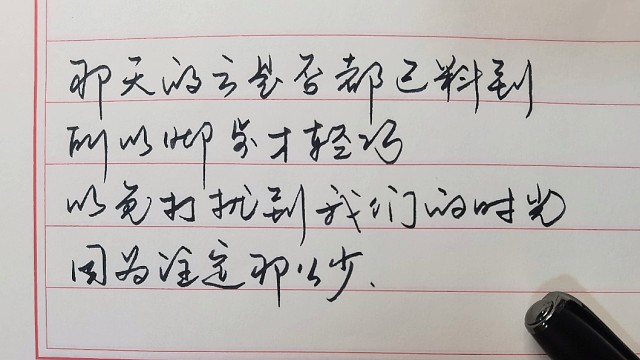 那天的云是否都已料到
所以脚步才轻巧
以免打扰到我们的时光
因为注定那么少